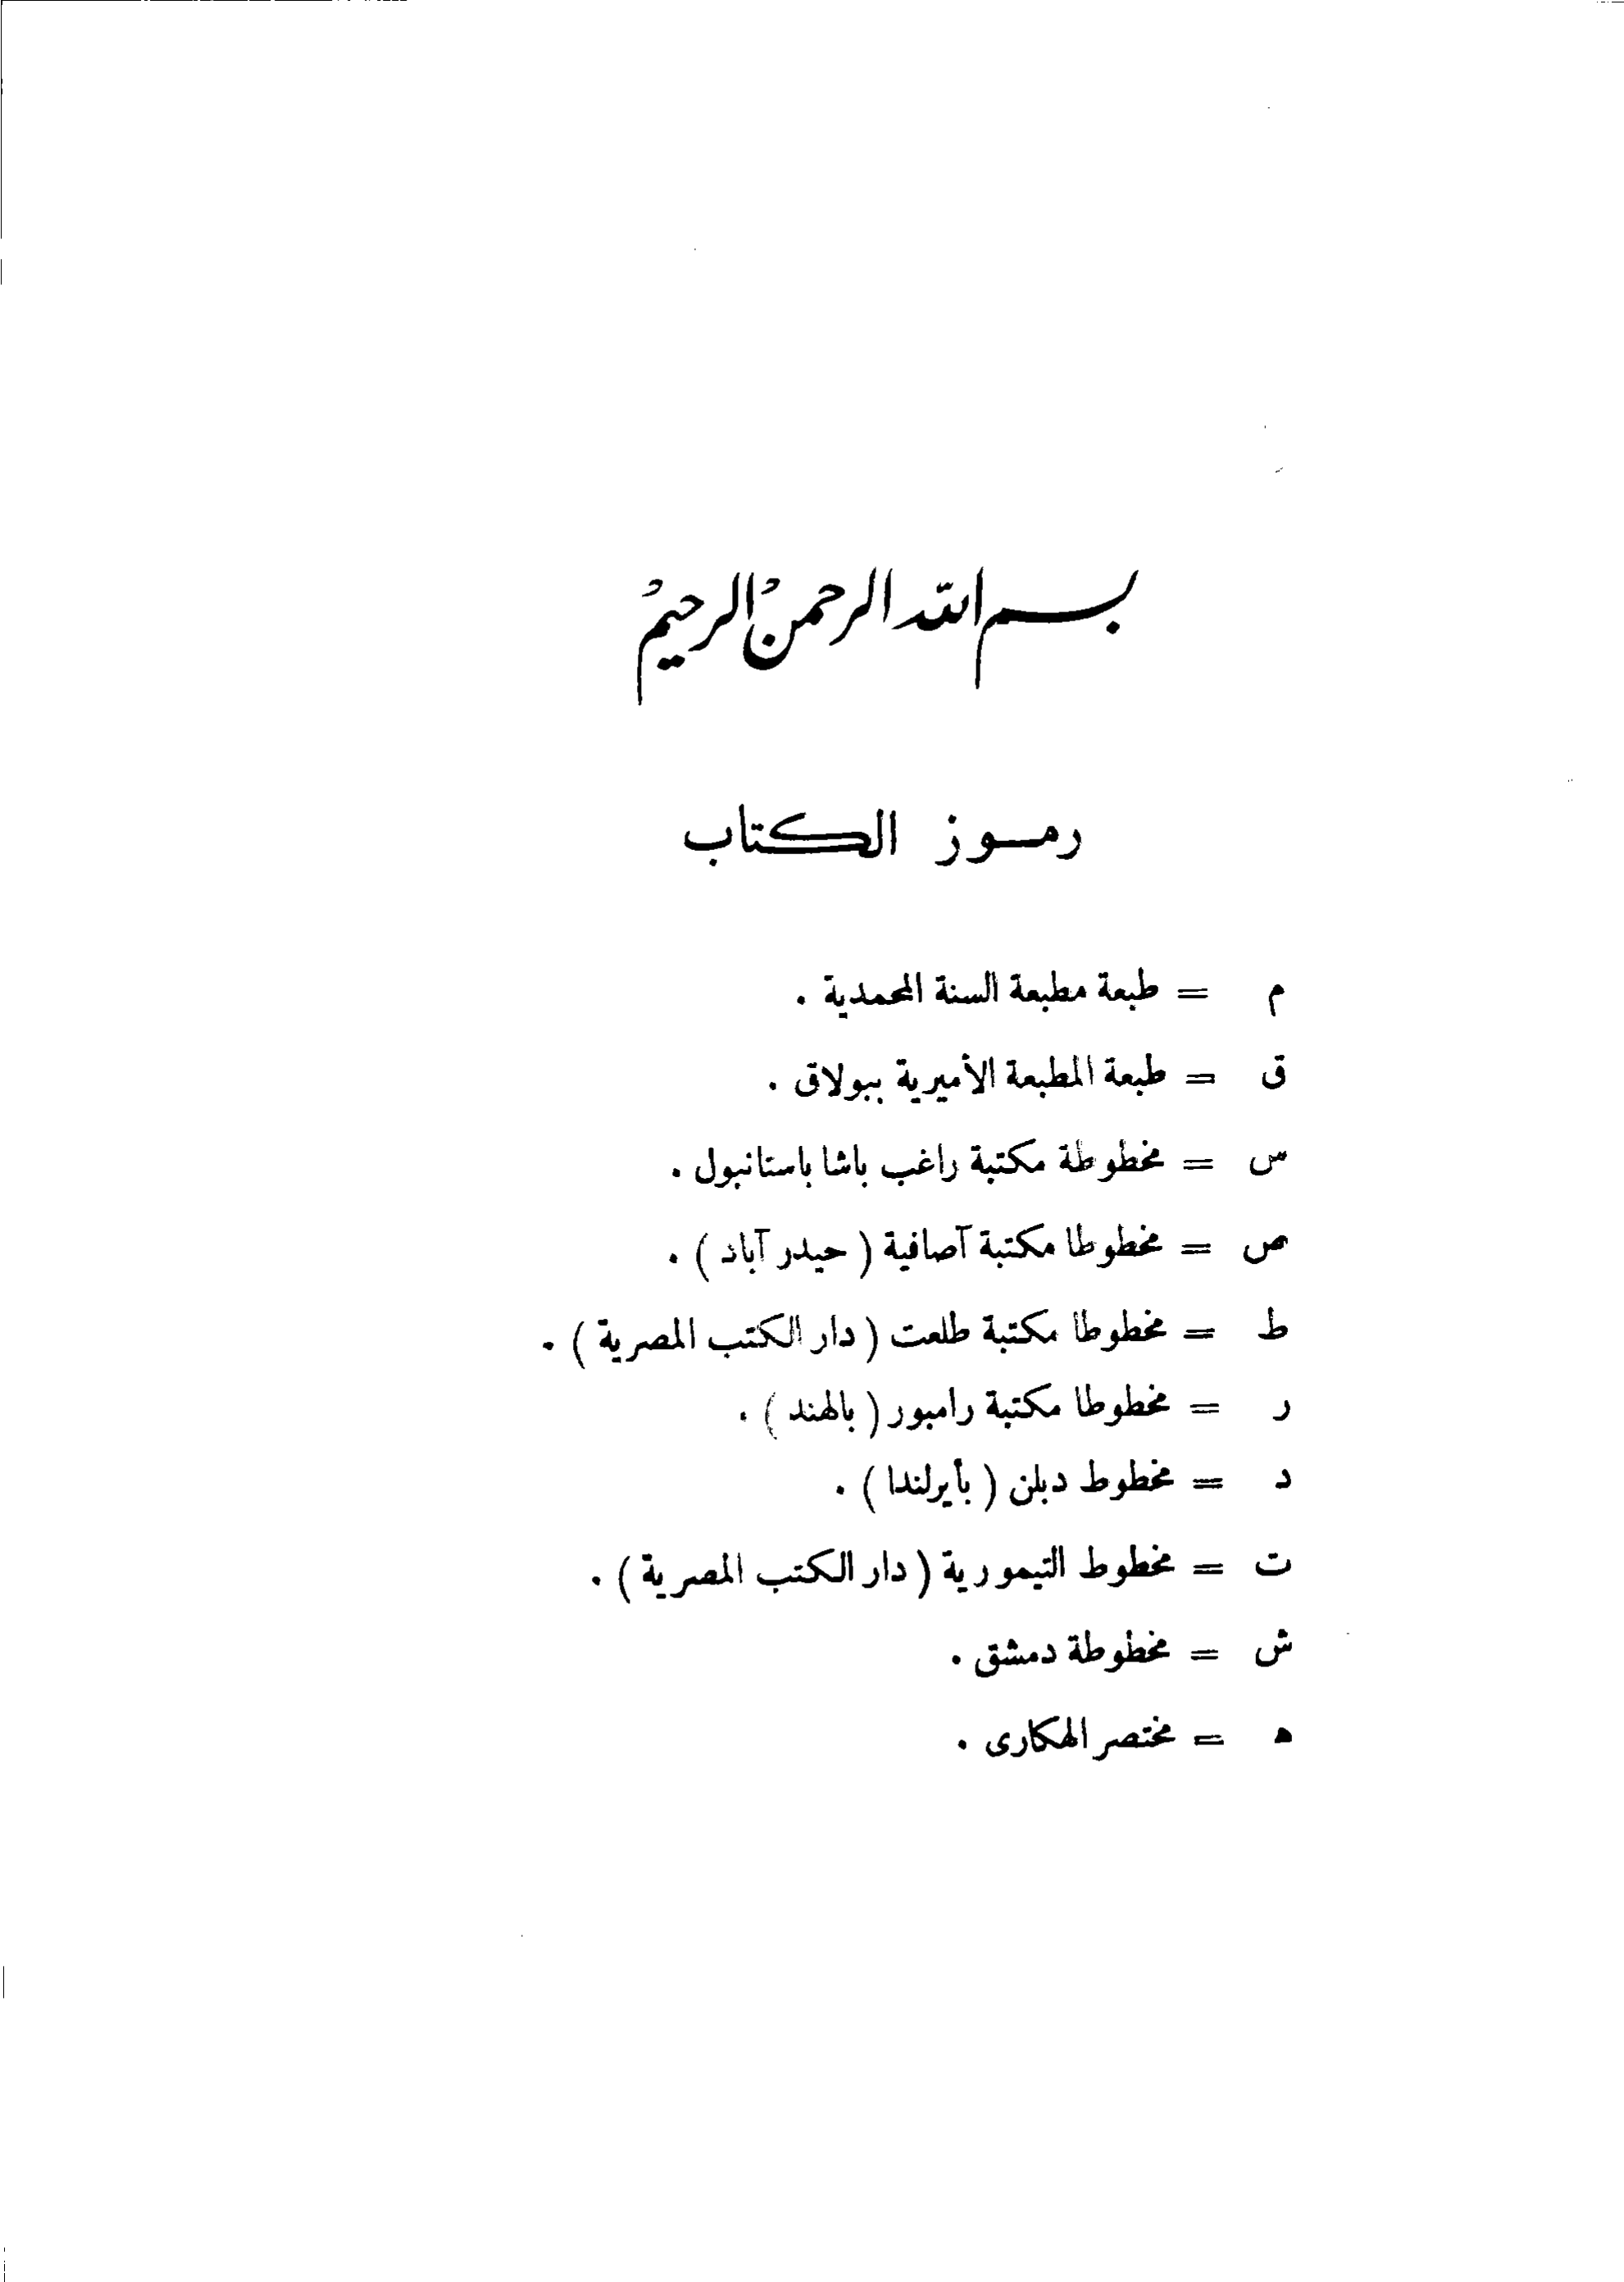 بسم الله الرحمن الرحيم
رموز الكتاب
م = طبعة مطبعة السنة المحمدية .
ق = طبعة المطبعة الأميرية ببولاق .
س = مخطوطة مكتبة راغب باشا باستانبول .
ص = مخطوطا مكتبة آصافية ( حيدر آباد ) .
ط = مخطوطا مكتبة طلعت ( دار الكتب المصرية ) .
ر = مخطوطا مكتبة رامبور ( بالهند ) .
د = مخطوط دبلن ( بأيرلندا ) .
ت = مخطوط التيمورية ( دار الكتب المصرية ) .
ش = مخطوطة دمشق .
ه = مختصر الهكارى .